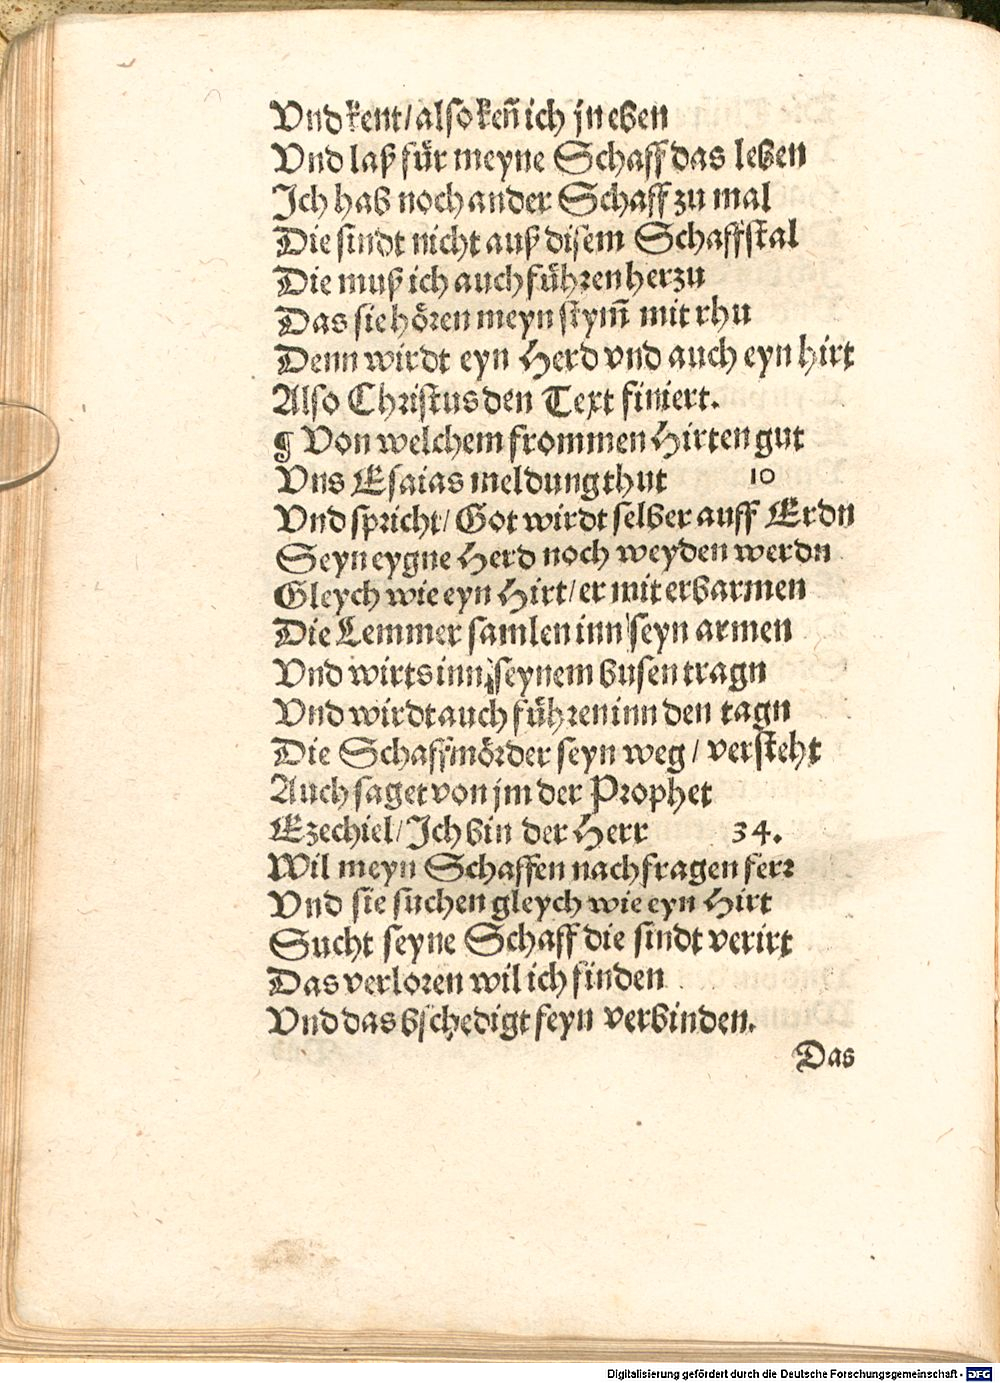 Vnd kent/ also keñ ich jn eben
Vnd laß für meyne Schaff das leben
Ich hab noch ander Schaff zu mal
Die sindt nicht auß disem Schaffstal
Die muß ich auch führen herzu
Das sie hören meyn stym̃ mit rhu
Denn wirdt eyn Herd vnd auch eyn hirt
Also Christus den Text finiert.
¶ Von welchem frommen Hirten gut
Vns Esaias meldung thut 10
Vnd spricht/ Got wirdt selber auff Erdn
Seyn eygne Herd noch weyden werdn
Gleych wie eyn Hirt/ er mit erbarmen
Die Lemmer samlen inn seyn armen
Vnd wirts inn seynem busen tragn
Vnd wirdt auch führen inn den tagn
Die Schaffmörder seyn weg/ versteht
Auch saget von jm der Prophet
Ezechiel/ Ich bin der Herr 34.
Wil meyn Schaffen nachfragen ferr
Vnd sie suchen gleych wie eyn Hirt
Sucht seyne Schaff die sindt verirt
Das verloren wil ich finden
Vnd das bschedigt feyn verbinden.
Das
Digitalisierung gefördert durch die Deutsche Forschungsgemeinschaft - DFG